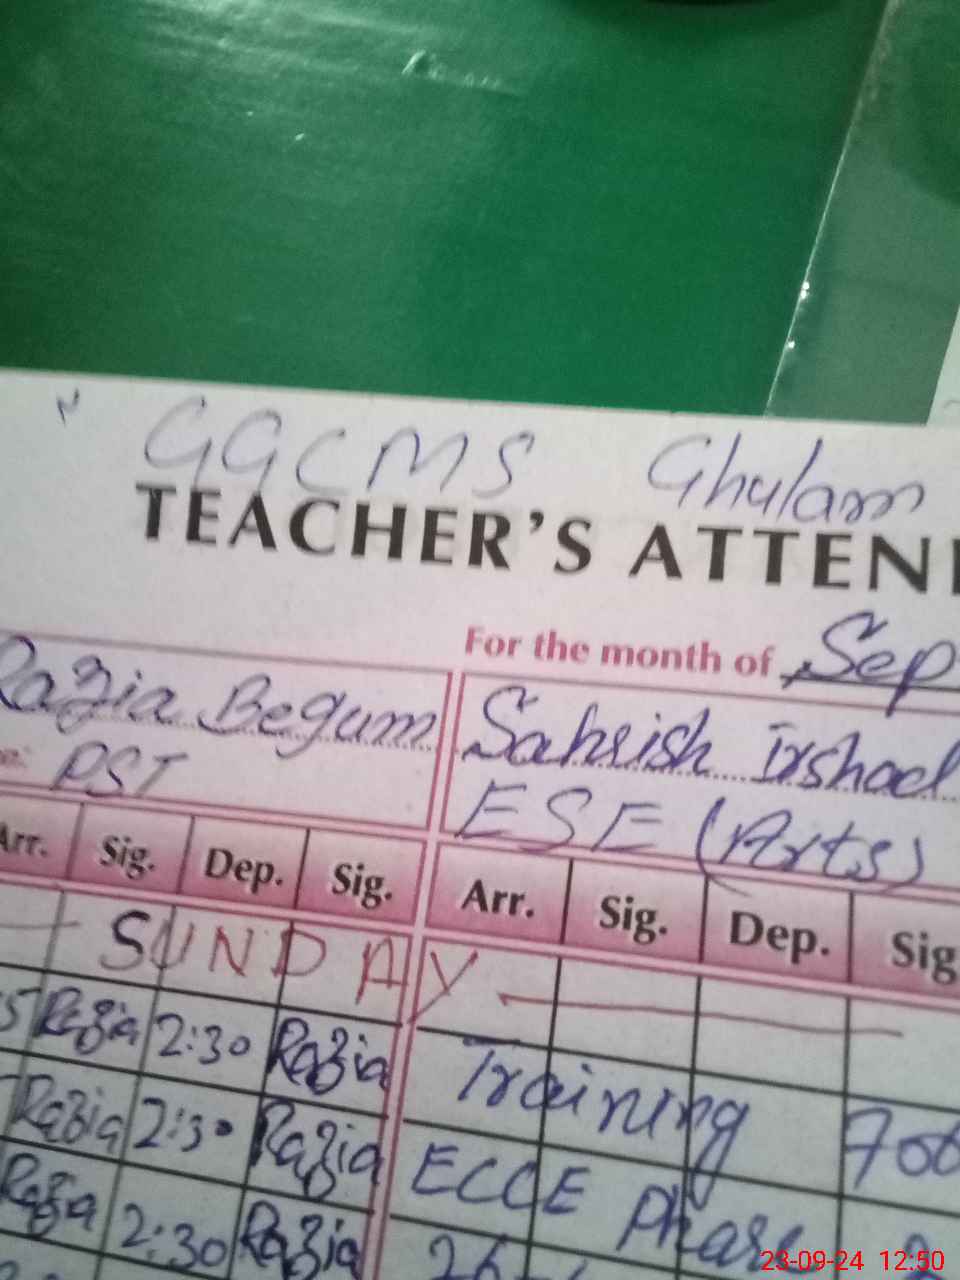 GGCMS Ghulam
TEACHER'S ATTEN
For the month of Sep
Razia Begum Sahrish Irshad
PST ESE (Arts)
Arr. Sig. Dep. Sig. Arr. Sig. Dep. Sig
SUNDAY
5 Razia 2:30 Razia Training
Razia 2:30 Razia ECCE Phase
Razia 2:30 Razia
23-09-24 12:50